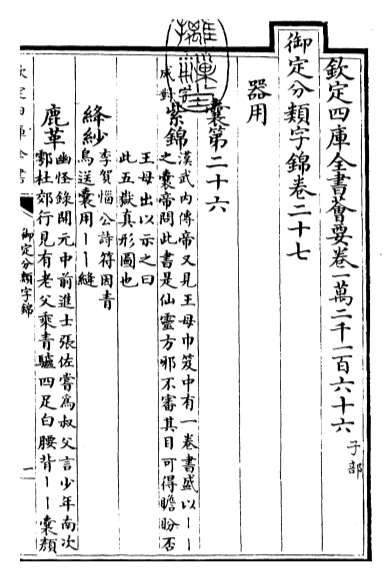 欽定四庫全書薈要卷一萬二千一百六十六 子部
御定分類字錦卷二十七
器用
囊第二十六
成對
紫錦 漢武內傳帝又見王母巾笈中有一卷書盛以丨丨
之囊帝問此書是仙靈方邪不審其目可得瞻盼否
王母出以示之曰
此五嶽真形圖也
絳紗 李賀惱公詩符因青
鳥送囊用丨丨縫
鹿革 幽怪錄開元中前進士張佐嘗為叔父言少年南次
鄠杜郊行見有老父乘青驢四足白腰背丨丨囊顏
欽定四庫全書
御定分類字錦
一